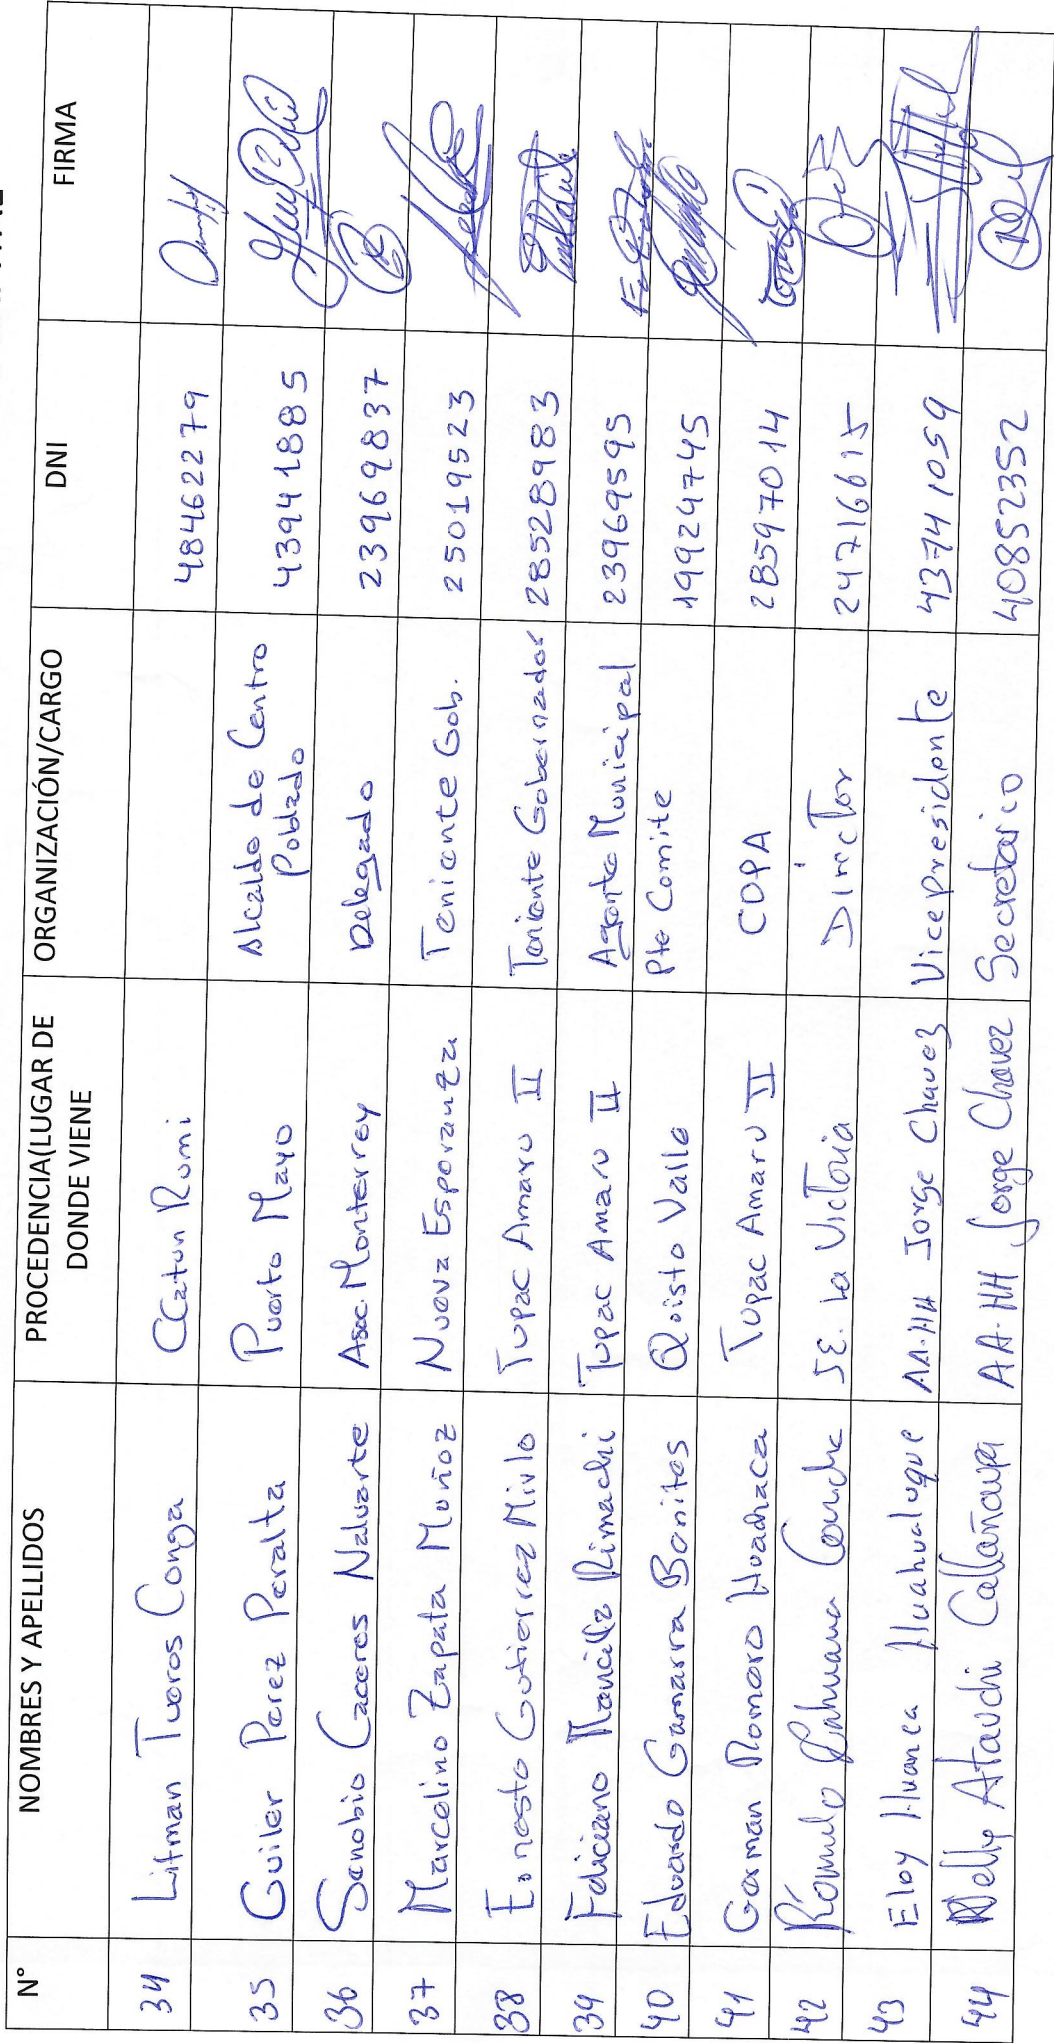 N° NOMBRES Y APELLIDOS PROCEDENCIA(LUGAR DE DONDE VIENE ORGANIZACIÓN/CARGO DNI FIRMA
34 Litman Tueros Conga CCatun Rumi 48462279
35 Guiler Perez Peralta Puerto Mayo Alcalde de Centro Poblado 43941885
36 Senobio Caceres Nalvarte Asoc. Monterrey Delegado 23969837
37 Marcelino Zapata Muñoz Nueva Esperanza Teniente Gob. 25019523
38 Ernesto Gutierrez Tupac Amaru II Teniente Gobernador 28528983
39 Feliciano Mancilla Rimachi Tupac Amaru II Agente Municipal 23969595
40 Eduardo Gamarra Benites Quisto Valle Pte Comite 19924745
41 German Romero Huachaca Tupac Amaru II COPA 28597014
42 Rómulo Cahuana Conde IE. La Victoria Director 24716615
43 Eloy Huanca Huahualuque AA.HH Jorge Chavez Vicepresidente 43741059
44 Nelly Atauchi Callañaupa AA.HH Jorge Chavez Secretario 40852352